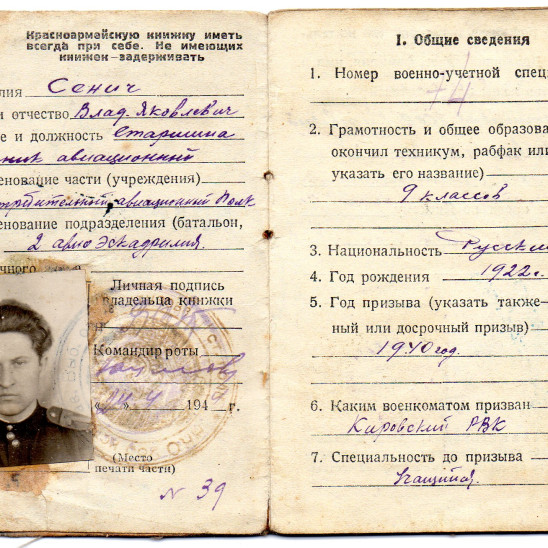 Красноармейскую книжку иметь
всегда при себе. Не имеющих
книжек—задерживать
лия Сенич
и отчество Влад. Яковлевич
е и должность старшина
ник авиационный
менование части (учреждения)
требительный авиационный Полк
менование подразделения (батальон,
2 авиа Эскадрилия
чного
Личная подпись
владельца книжки
Командир роты
194 г.
(Место
печати части)
N 39
I. Общие сведения
1. Номер военно-учетной спец
2. Грамотность и общее образова
окончил техникум, рабфак или
указать его название)
9 классов
3. Национальность Русский
4. Год рождения 1922 г.
5. Год призыва (указать также-
ный или досрочный призыв)
1940 год.
6. Каким военкоматом призван
Кировский РВК
7. Специальность до призыва
Учащийся